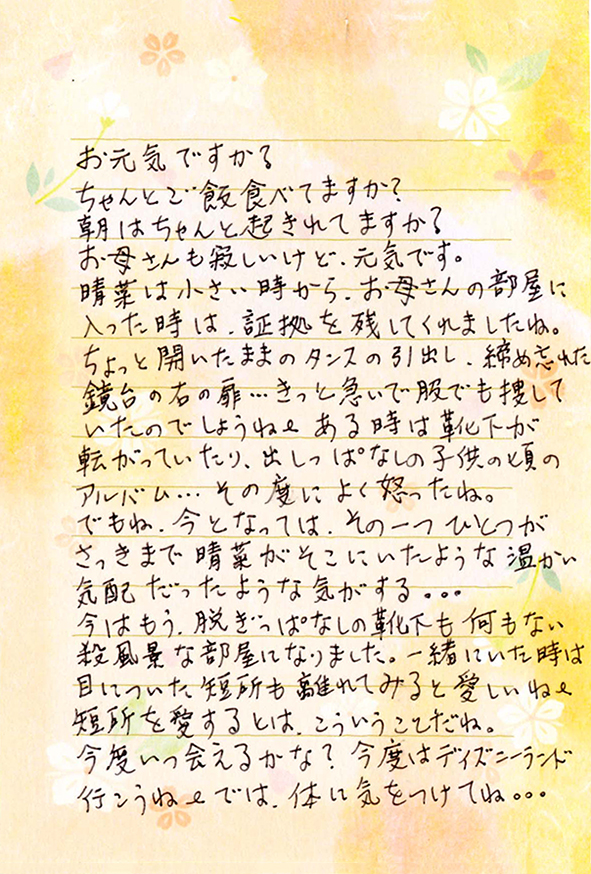 お元気ですか?
ちゃんとご飯食べてますか?
朝はちゃんと起きれてますか?
お母さんも寂しいけど、元気です。
晴菜は小さい時から、お母さんの部屋に
入った時は、証拠を残してくれましたね。
ちょっと開いたままのタンスの引出し、締め忘れた
鏡台の右の扉…きっと急いで服でも捜して
いたのでしょうね〜 ある時は靴下が
転がっていたり、出しっぱなしの子供の頃の
アルバム…その度によく怒ったね。
でもね、今となっては、その一つひとつが
さっきまで晴菜がそこにいたような温かい
気配だったような気がする。。。
今はもう、脱ぎっぱなしの靴下も何もない
殺風景な部屋になりました。一緒にいた時は
目についた短所も離れてみると愛しいね〜
短所を愛するとは、こういうことだね。
今度いつ会えるかな?今度はディズニーランド
行こうね〜では、体に気をつけてね。。。